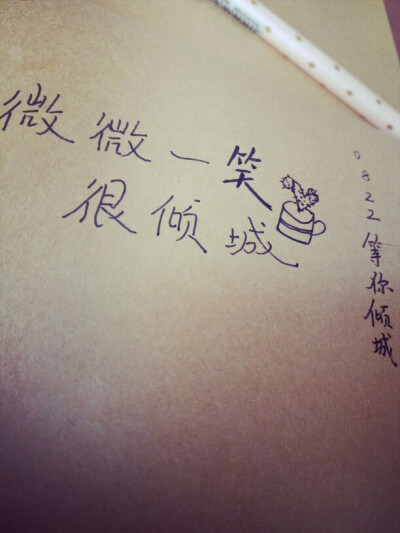 微微一笑
很倾城
0822等你倾城